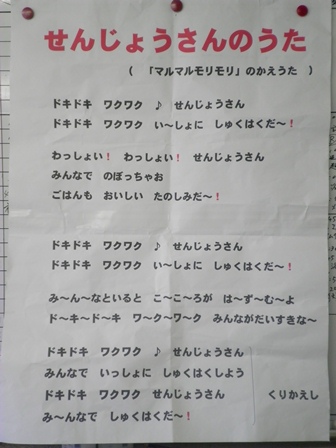 せんじょうさんのうた
（ 「マルマルモリモリ」のかえうた ）
ドキドキ ワクワク ♪ せんじょうさん
ドキドキ ワクワク い〜しょに しゅくはくだ〜！
わっしょい！ わっしょい！ せんじょうさん
みんなで のぼっちゃお
ごはんも おいしい たのしみだ〜！
ドキドキ ワクワク ♪ せんじょうさん
ドキドキ ワクワク い〜しょに しゅくはくだ〜！
み〜ん〜なといると こ〜こ〜ろが は〜ず〜む〜よ
ド〜キ〜ド〜キ ワ〜ク〜ワ〜ク みんながだいすきな〜
ドキドキ ワクワク ♪ せんじょうさん
みんなで いっしょに しゅくはくしよう
ドキドキ ワクワク せんじょうさん くりかえし
み〜んなで しゅくはくだ〜！